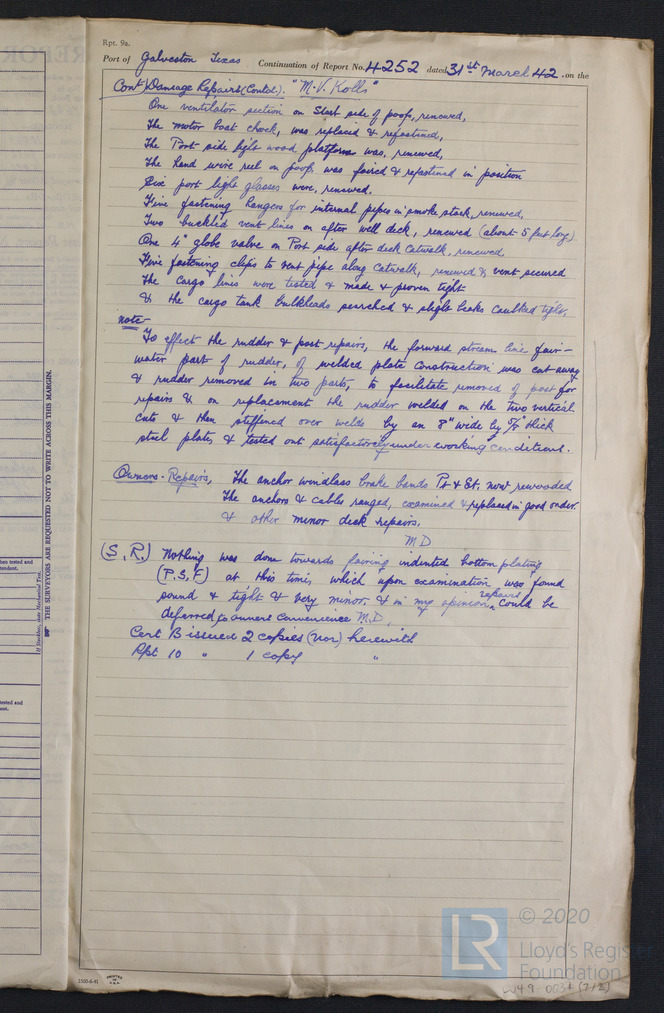 Rpt. 9a.
Port of Galveston Texas Continuation of Report No. 4252 dated 31st March 42. on the
Cont) Damage Repairs (Contd.). "M.V. Kolls"
One ventilator section on Starb side of poop, renewed,
The motor boat chock, was replaced & refastened,
The Port side light wood platform was, renewed,
The hand wire reel on poop, was faired & refastened in position
Six port light glasses were, renewed.
Five fastening hangers for internal pipes in smoke stack, renewed,
Two buckled vent lines on after well deck, renewed (about 5 feet long)
One 4" globe valve on Port side after deck catwalk, renewed,
Five fastening clips to vent pipe along catwalk, renewed & vent secured
The cargo lines were tested & made & proven tight
& the cargo tank bulkheads searched & slight leaks caulked tight.
note-
To effect the rudder & post repairs, the forward stream line fair-
water part of rudder, of welded plate construction was cut away
& rudder removed in two parts, to facilitate removal of post for
repairs & on replacement the rudder welded on the two vertical
cuts & then stiffened over welds by an 8" wide by 5/8" thick
steel plates & tested out satisfactorily under working conditions.
Owners- Repairs, The anchor windlass brake bands Pt & St. now rewooded
The anchors & cables ranged, examined & replaced in good order.
& other minor deck repairs.
M D
(S.R.) Nothing was done towards fairing indented bottom plating
(P.S.F) at this time, which upon examination was found
sound & tight & very minor, & in my opinion repairs could be
deferred to owners convenience M.D.
Cert B issued 2 copies (nor) herewith
Rpt 10 " 1 copy "
THE SURVEYORS ARE REQUESTED NOT TO WRITE ACROSS THIS MARGIN.
1510-6-41
PRINTED IN U.S.A.
LR
© 2020
Lloyd's Register
Foundation